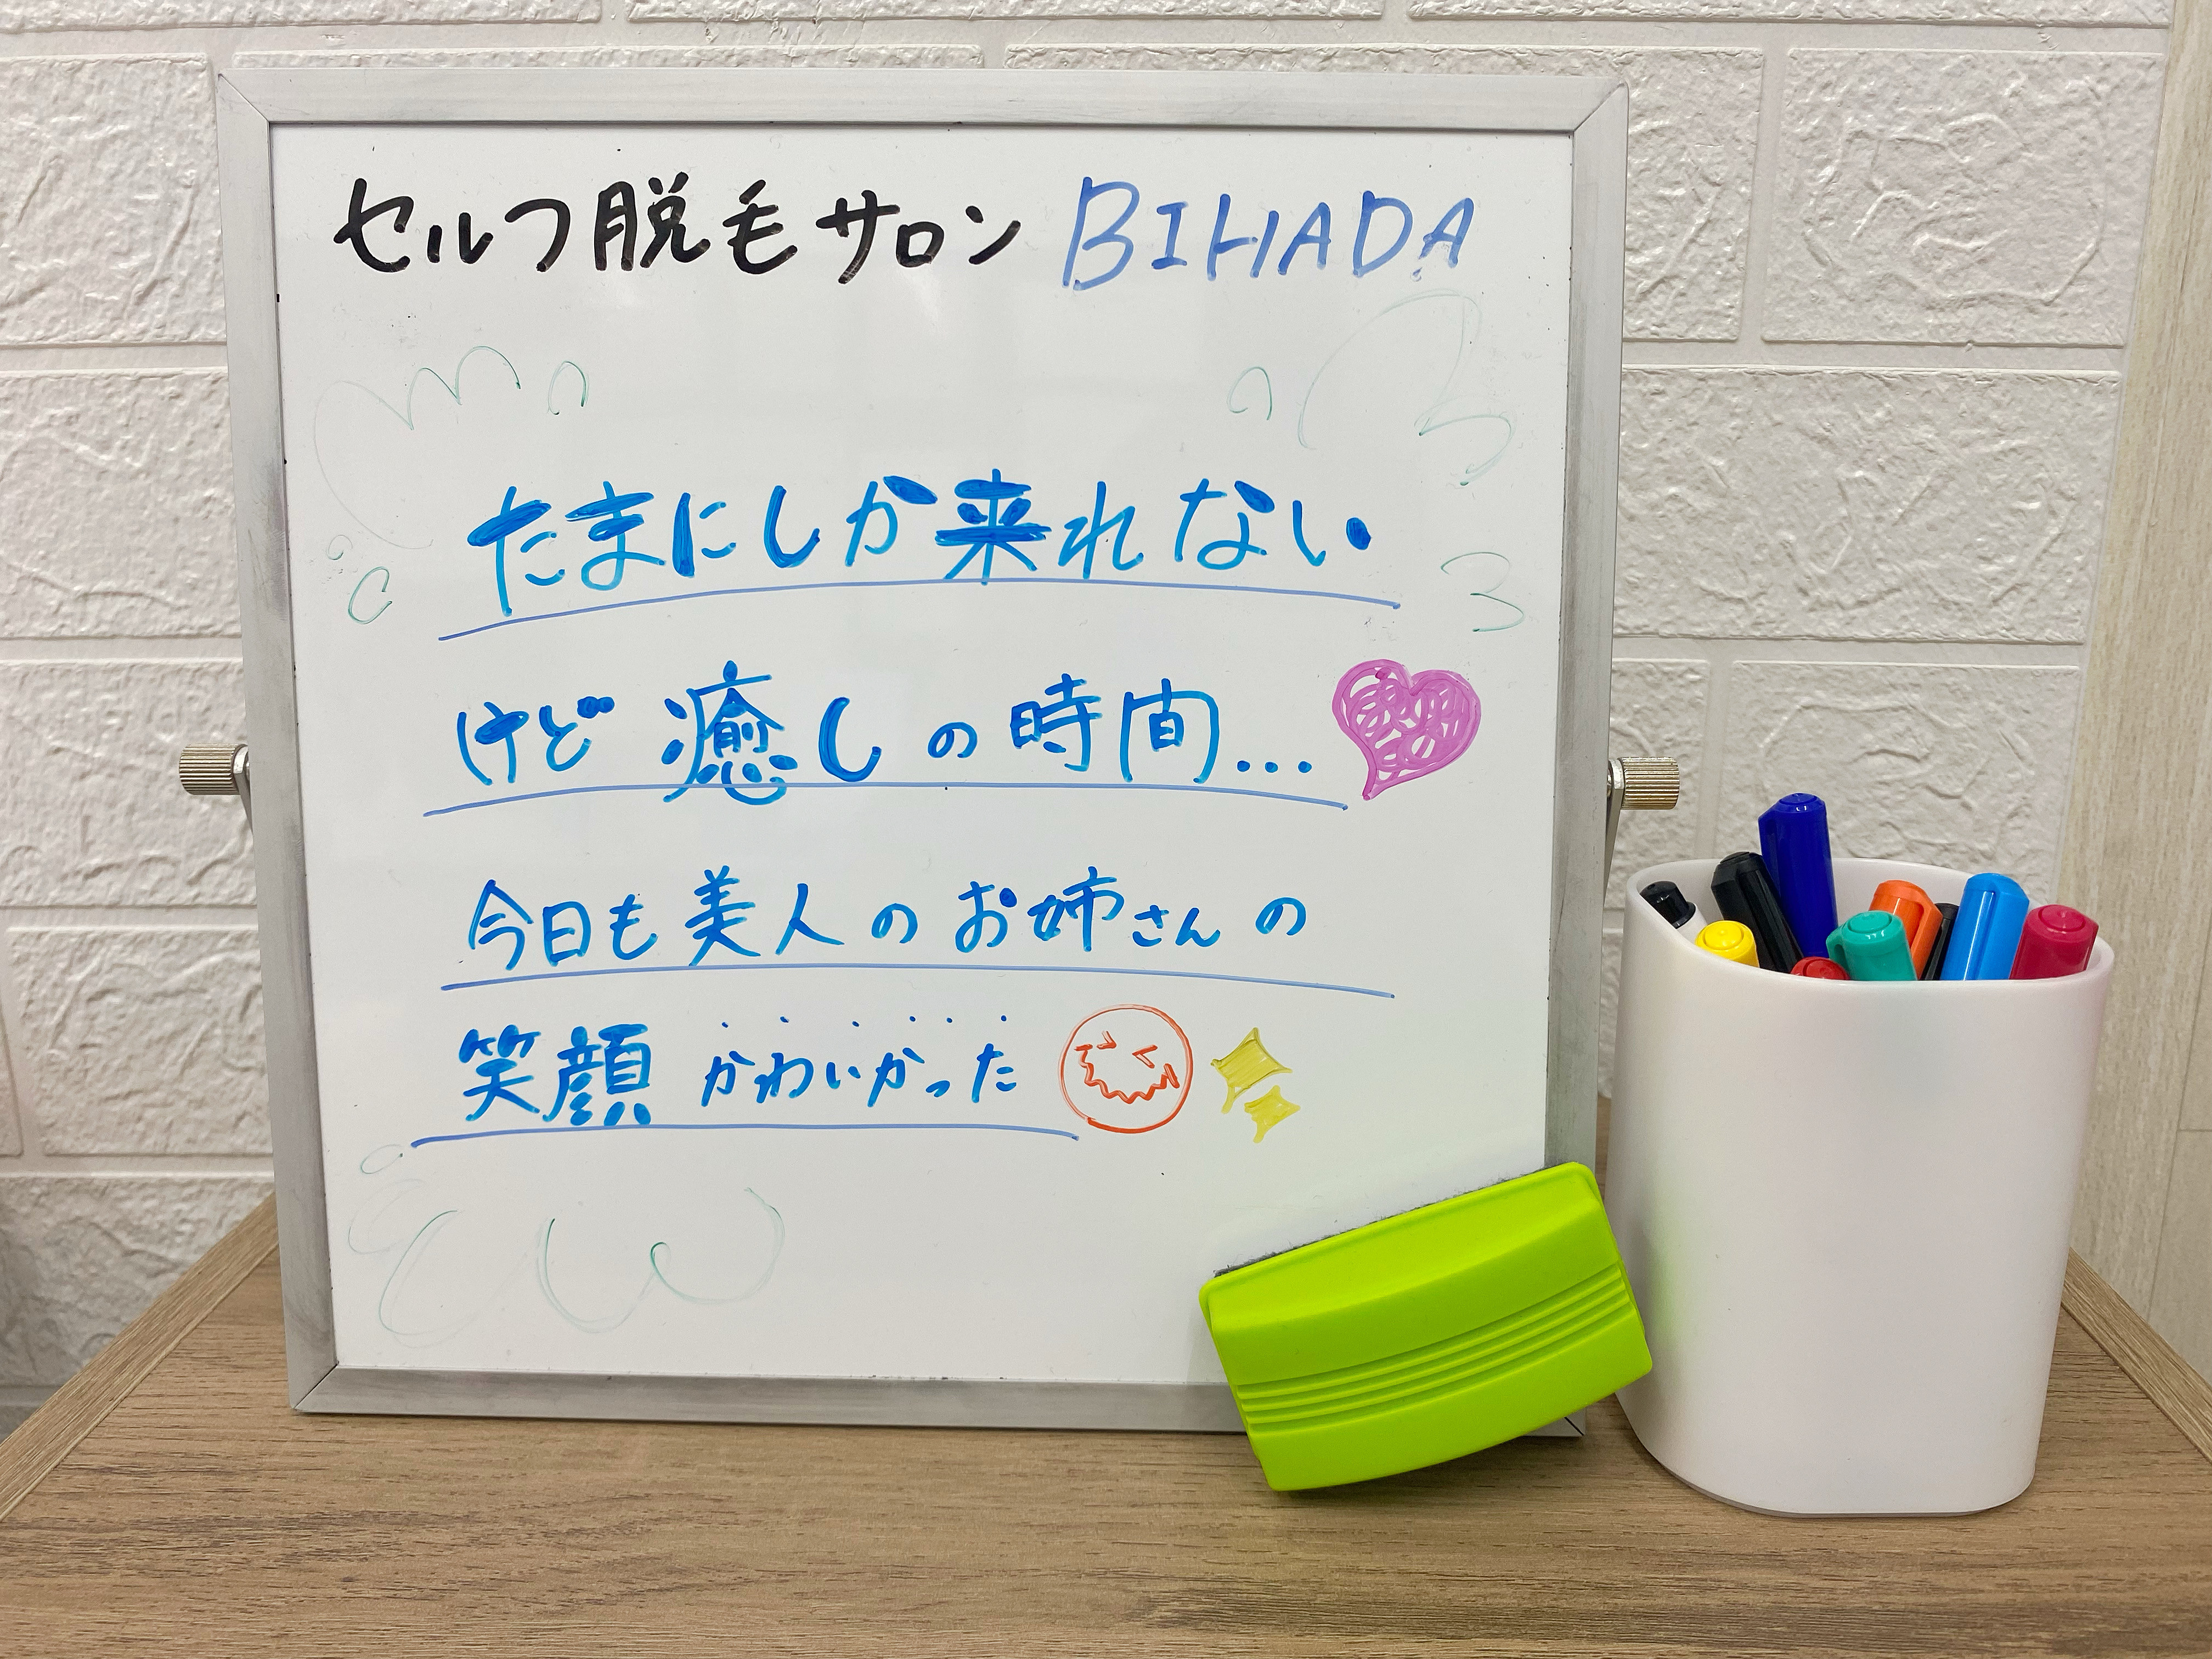 セルフ脱毛サロン BIHADA
たまにしか来れない
けど 癒しの時間...
今日も美人のお姉さんの
笑顔 かわいかった